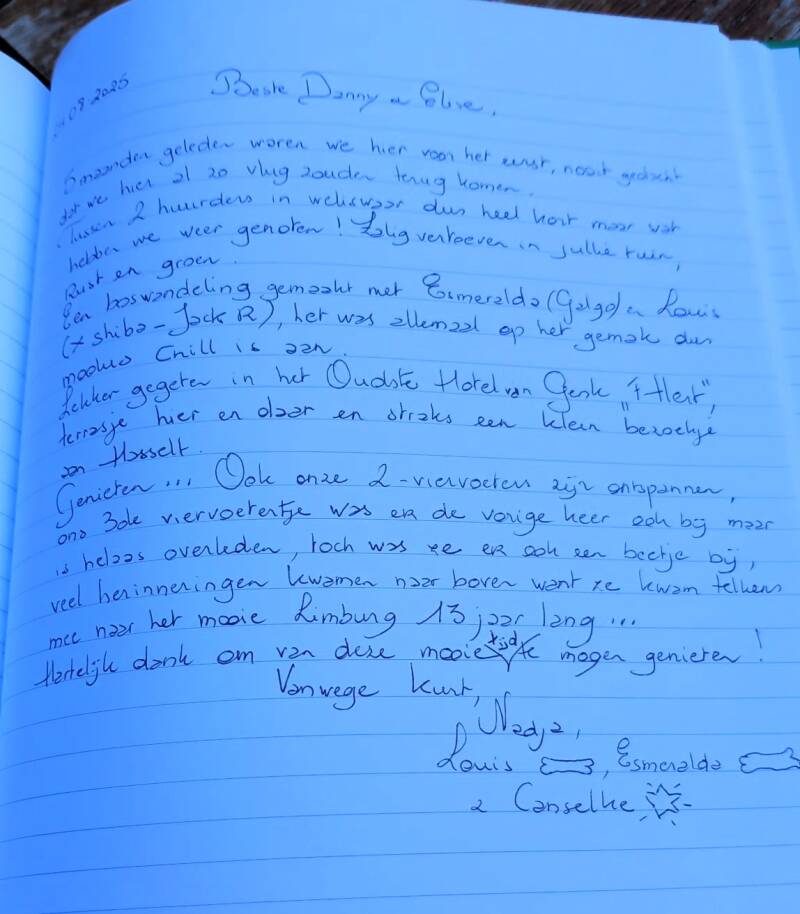 08.2025
Beste Danny en Elive,
6 maanden geleden waren we hier voor het eerst, nooit gedacht
dat we hier al zo vlug zouden terug komen.
Tussen 2 huurders in weliswaar dus heel kort maar wat
hebben we weer genoten! Zalig vertoeven in jullie tuin,
Rust en groen.
Een boswandeling gemaakt met Esmeralda (Galgo) en Louis
(x shiba - Jack R), het was allemaal op het gemak dus
modus Chill is aan.
Lekker gegeten in het Oudste Hotel van Genk "'t Heit",
terrasje hier en daar en straks een klein bezoekje
aan Hasselt.
Genieten... Ook onze 2-viervoeters zijn ontspannen,
ons 3de viervoetertje was er de vorige keer ook bij maar
is helaas overleden, toch was ze er ook een beetje bij,
veel herinneringen kwamen naar boven want ze kwam telkens
mee naar het mooie Limburg 13 jaar lang...
Hartelijk dank om van deze mooie tijd te mogen genieten!
Vanwege Kurt,
Nadja,
Louis, Esmeralda
2 Canselke